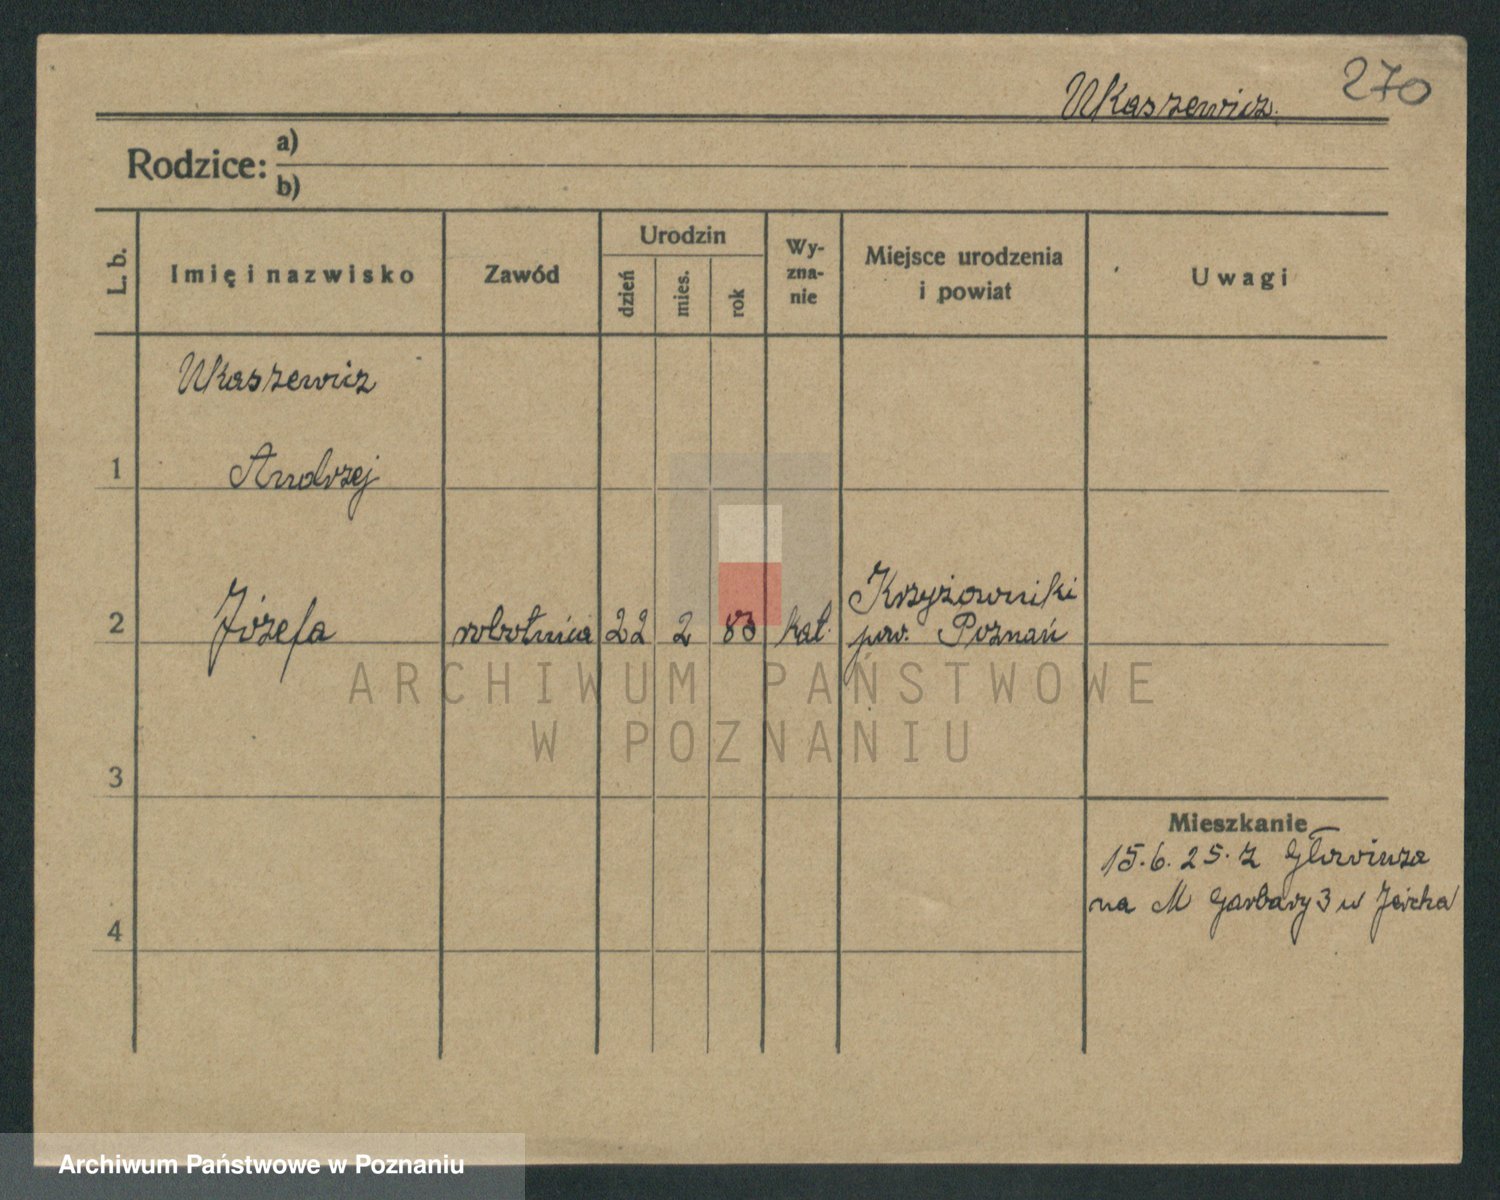 270
Ukaszewicz.
Rodzice:
a)
b)
L. b.
Imię i nazwisko
Zawód
Urodzin
dzień
mies.
rok
Wy-
zna-
nie
Miejsce urodzenia
i powiat
Uwagi
Ukaszewicz
1 Andrzej
2 Józefa robotnica 22 2 83 kat. Krzyżowniki
pow. Poznań
3
4
Mieszkanie
15.6.25. z
na M Garbary 3 u
ARCHIWUM PAŃSTWOWE
W POZNANIU
Archiwum Państwowe w Poznaniu